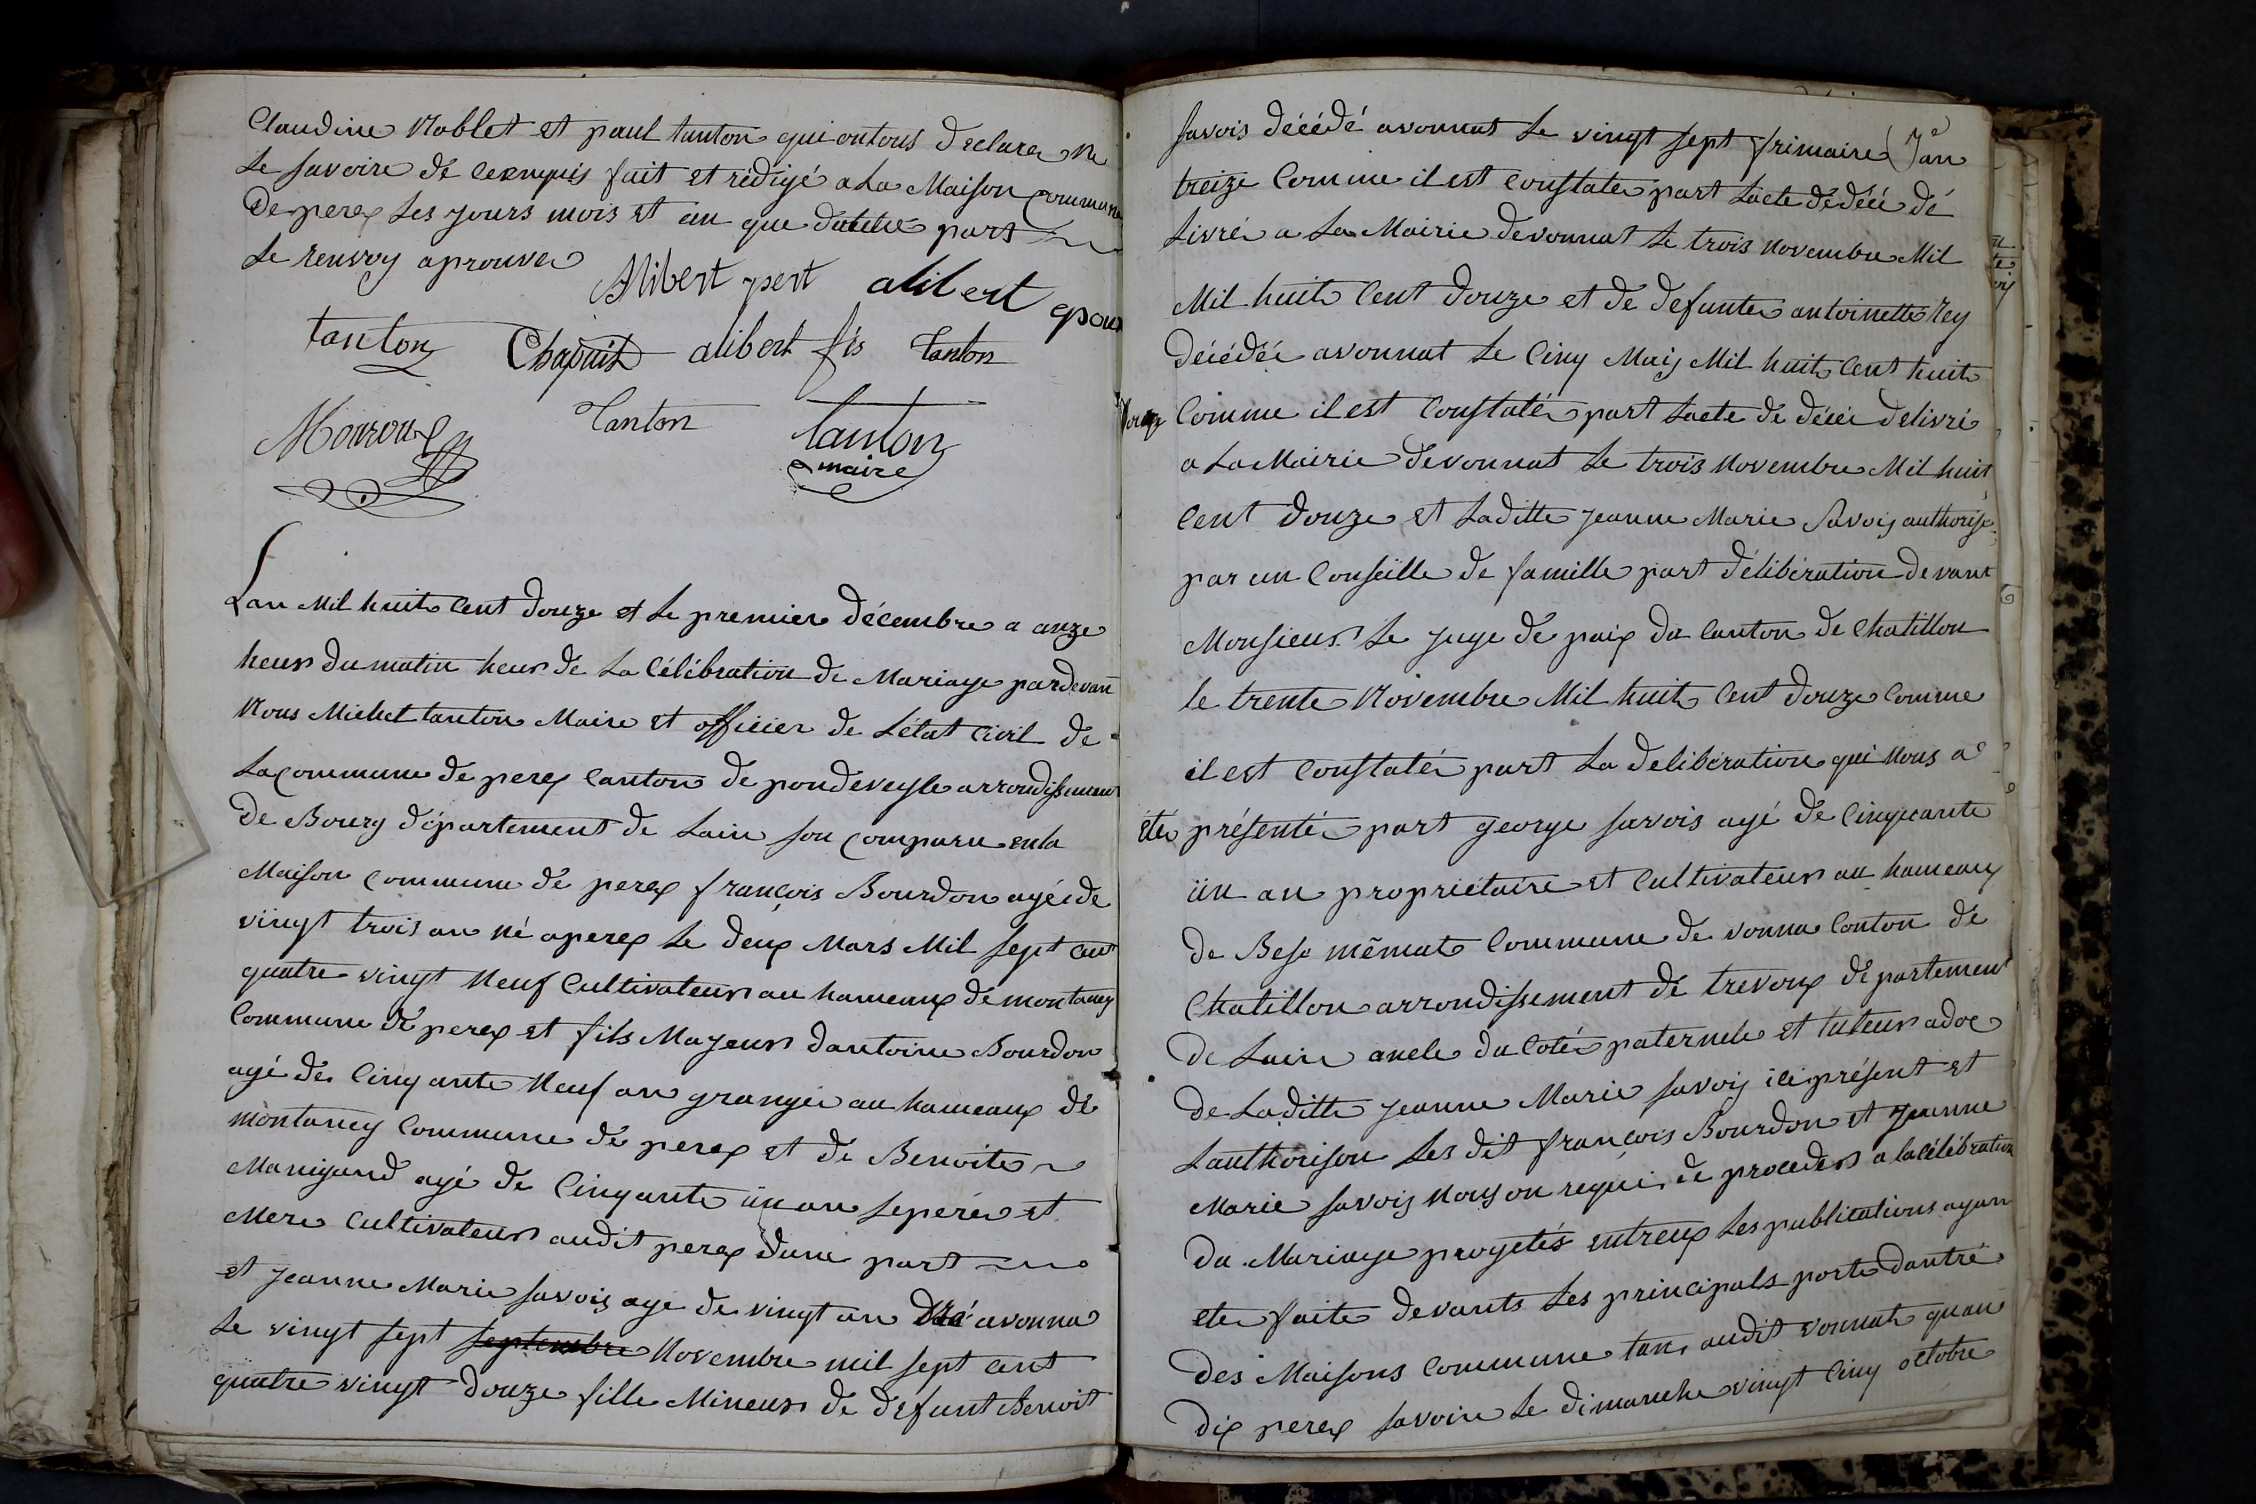 Claudine Noblet et paul tanton qui ontous declarer ne
le savoire de cexnquis fait et rédigé a la Maison commune
de perex les jours mois et an que dautre part
le renvoy aprouver
Alibert pert alibert epoux
tanton Chapuit alibert fis tanton
Monroux tanton tanton
maire
Lan Mil huit cent douze et le premier décembre a onze
heur du matin heur de la Célébration de Mariage pardevan
Nous Michel tanton Maire et officier de létat Civil de
la commune de perex canton de pondeveyle arrondissement
de Bourg département de Lain son comparu en la
Maison commune de perex françois Bourdon agé de
vingt trois an né a perex le deux Mars Mil sept cent
quatre vingt Neuf Cultivateur au hameaux de montaney
Commune de perex et fils Majeur dantoine Bourdon
agé de Cinqante Neuf an granger au hameaux de
montaney Commune de perex et de Benoite
Manigand agé de Cinqante un an le perer et
Mere Cultivateur audit perex dune part
et jeanne Marie savoy age de vingt an né a vonna
le vingt sept septembre Novembre mil sept cent
quatre vingt douze fille Mineur de defunt Benoit
savois décédé a vonnat le vingt sept frimaire Jan
treize Comme il est constater part lacte dedéce dé
livrér a la Mairie de vonnat le trois Novembre Mil
Mil huit Cent douze et de defunte antoinette Rey
décédée a vonnat le Cinq Maij Mil huit Cent huit
Comme il est Constatér part lacte de décée delivré
a la Mairie de vonnat le trois Novembre Mil huit
Cent douze et laditte jeanne Marie Savoij authorise
par un Conseille de famille part délibération devant
Monsieur le juge de paix du Canton de Chatillon
le trente Novembre Mil huit Cent douze comme
il est Constatér part la deliberation qui Nous a
éter présentér part george savois agé de Cinqcante
un an propriétaire et Cultivateur au hameaux
de Bese mémat Commune de vonna Conton de
Chatillon arrondissement de trevoux département
de Lain oncle du Cotér paternele et tuteur adoc
de laditte jeanne Marie savoij ici présent et
lauthorison les dit françois Bourdon et jeanne
Marie savoij Nous on requi de proceder a la célébration
du Mariage progetés entreux les publications ayan
eter faite devants les principals porte dantré
des Maisons Commune tan audit vonnat quau
dix perex savoire le dimanche vingt Cinq octobre